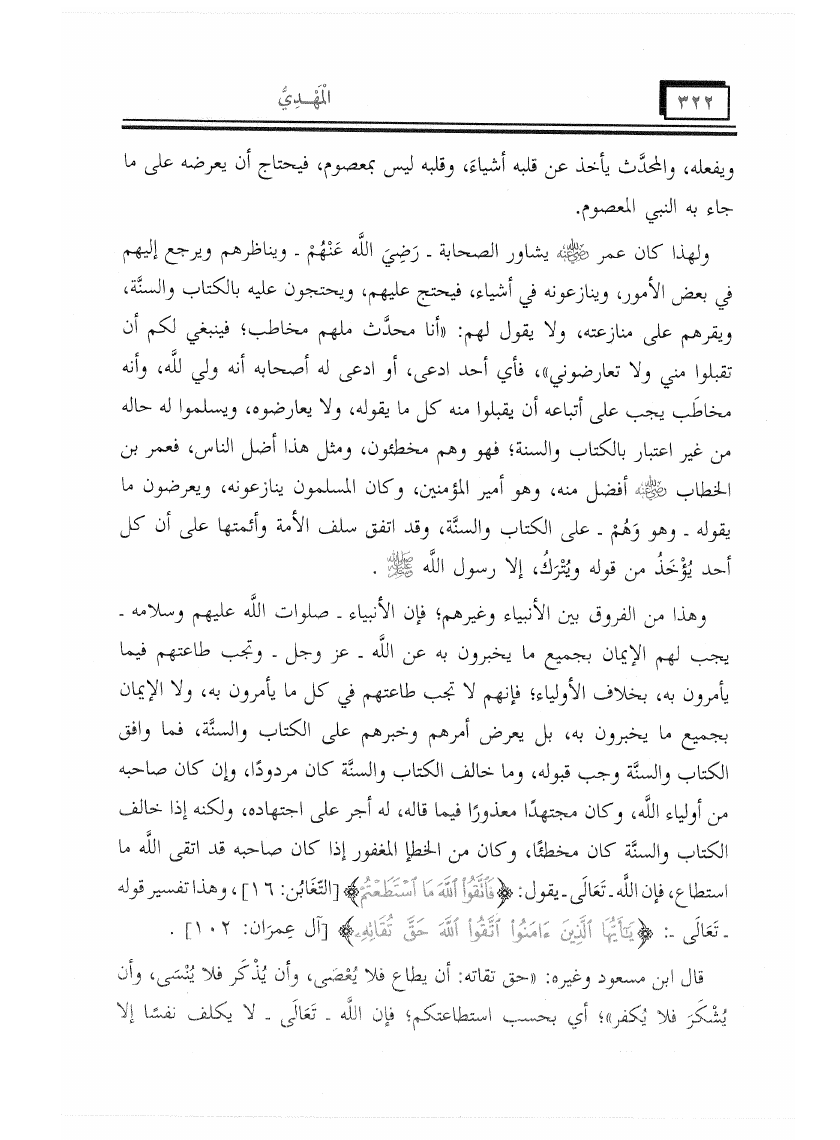 ٣٢٢
الْمَهْـدِيُّ
ويفعله، والمحدَّث يأخذ عن قلبه أشياءَ، وقلبه ليس بمعصوم، فيحتاج أن يعرضه على ما
جاء به النبي المعصوم.
ولهذا كان عمر رضي الله عنه يشاور الصحابة ـ رَضِيَ اللَّه عَنْهُمْ ـ ويناظرهم ويرجع إليهم
في بعض الأمور، وينازعونه في أشياء، فيحتج عليهم، ويحتجون عليه بالكتاب والسنَّة،
ويقرهم على منازعته، ولا يقول لهم: «أنا محدَّث ملهم مخاطب؛ فينبغي لكم أن
تقبلوا مني ولا تعارضوني»، فأي أحد ادعى، أو ادعى له أصحابه أنه ولي للَّه، وأنه
مخاطَب يجب على أتباعه أن يقبلوا منه كل ما يقوله، ولا يعارضوه، ويسلموا له حاله
من غير اعتبار بالكتاب والسنة؛ فهو وهم مخطئون، ومثل هذا أضل الناس، فعمر بن
الخطاب رضي الله عنه أفضل منه، وهو أمير المؤمنين، وكان المسلمون ينازعونه، ويعرضون ما
يقوله ـ وهو وَهُمْ ـ على الكتاب والسنَّة، وقد اتفق سلف الأمة وأئمتها على أن كل
أحد يُؤْخَذُ من قوله ويُتْرَكُ، إلا رسول اللَّه ﷺ .
وهذا من الفروق بين الأنبياء وغيرهم؛ فإن الأنبياء ـ صلوات اللَّه عليهم وسلامه ـ
يجب لهم الإيمان بجميع ما يخبرون به عن اللَّه ـ عز وجل ـ وتجب طاعتهم فيما
يأمرون به، بخلاف الأولياء؛ فإنهم لا تجب طاعتهم في كل ما يأمرون به، ولا الإيمان
بجميع ما يخبرون به، بل يعرض أمرهم وخبرهم على الكتاب والسنَّة، فما وافق
الكتاب والسنَّة وجب قبوله، وما خالف الكتاب والسنَّة كان مردودًا، وإن كان صاحبه
من أولياء اللَّه، وكان مجتهدًا معذورًا فيما قاله، له أجر على اجتهاده، ولكنه إذا خالف
الكتاب والسنَّة كان مخطئًا، وكان من الخطإ المغفور إذا كان صاحبه قد اتقى اللَّه ما
استطاع، فإن اللَّه ـ تَعَالَى ـ يقول: ﴿فَٱتَّقُوا۟ ٱللَّهَ مَا ٱسْتَطَعْتُمْ﴾ [التَّغَابُن: ١٦]، وهذا تفسير قوله
ـ تَعَالَى ـ: ﴿يَـٰٓأَيُّهَا ٱلَّذِينَ ءَامَنُوا۟ ٱتَّقُوا۟ ٱللَّهَ حَقَّ تُقَاتِهِۦ﴾ [آل عِمرَان: ١٠٢] .
قال ابن مسعود وغيره: «حق تقاته: أن يطاع فلا يُعْصَى، وأن يُذْكَر فلا يُنْسَى، وأن
يُشْكَرَ فلا يُكفر»؛ أي بحسب استطاعتكم؛ فإن اللَّه ـ تَعَالَى ـ لا يكلف نفسًا إلا